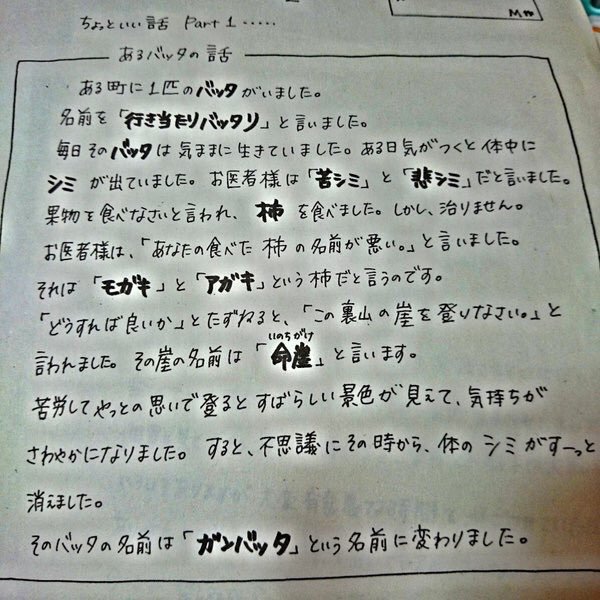 ちょっといい話 Part 1 ・・・・・
あるバッタの話
ある町に1匹のバッタがいました。
名前を「行き当たりバッタリ」と言いました。
毎日そのバッタは気ままに生きていました。ある日気がつくと体中に
シミが出ていました。お医者様は「苦シミ」と「悲シミ」だと言いました。
果物を食べなさいと言われ、柿を食べました。しかし、治りません。
お医者様は、「あなたの食べた柿の名前が悪い。」と言いました。
それは「モガキ」と「アガキ」という柿だと言うのです。
「どうすれば良いか」とたずねると、「この裏山の崖を登りなさい。」と
いのちがけ
言われました。その崖の名前は「命崖」と言います。
苦労してやっとの思いで登るとすばらしい景色が見えて、気持ちが
さわやかになりました。すると、不思議にその時から、体のシミがすーっと
消えました。
そのバッタの名前は「ガンバッタ」という名前に変わりました。